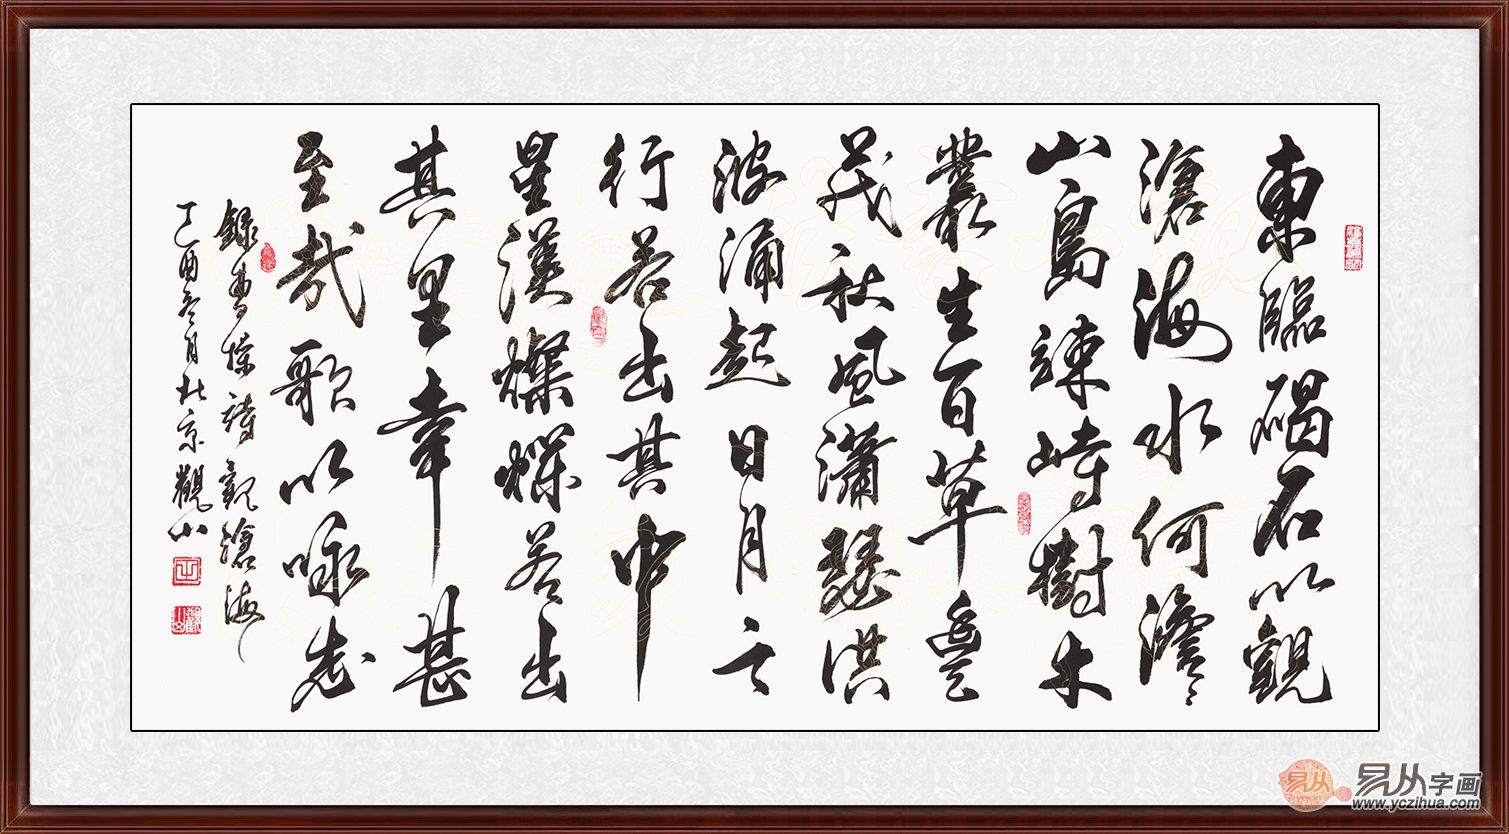 東臨碣石以觀
滄海水何澹〻
山島竦峙樹木
叢生百草豐
茂秋風瀟瑟洪
波涌起日月之
行若出其中
星漢燦爛若出
其里幸甚
至哉歌以咏志
錄曹操詩觀滄海
丁酉冬月於京觀山
易从
易从字画
www.yczihua.com